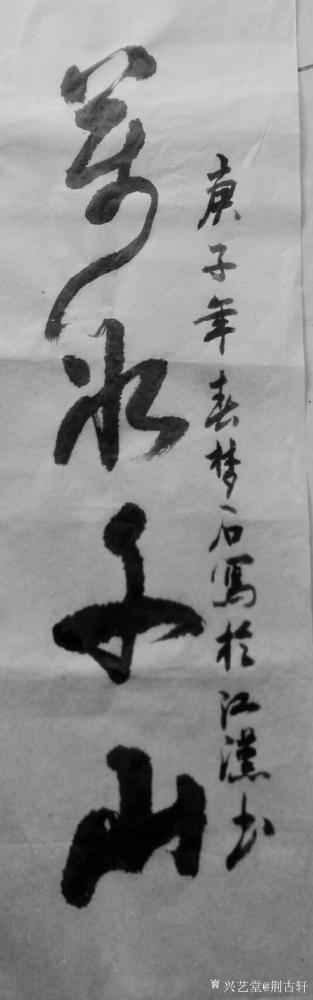 萬水千山
庚子年春梦石寫於江漢书
兴艺堂@荆古轩